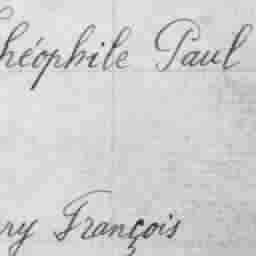 Théophile Paul
ry François